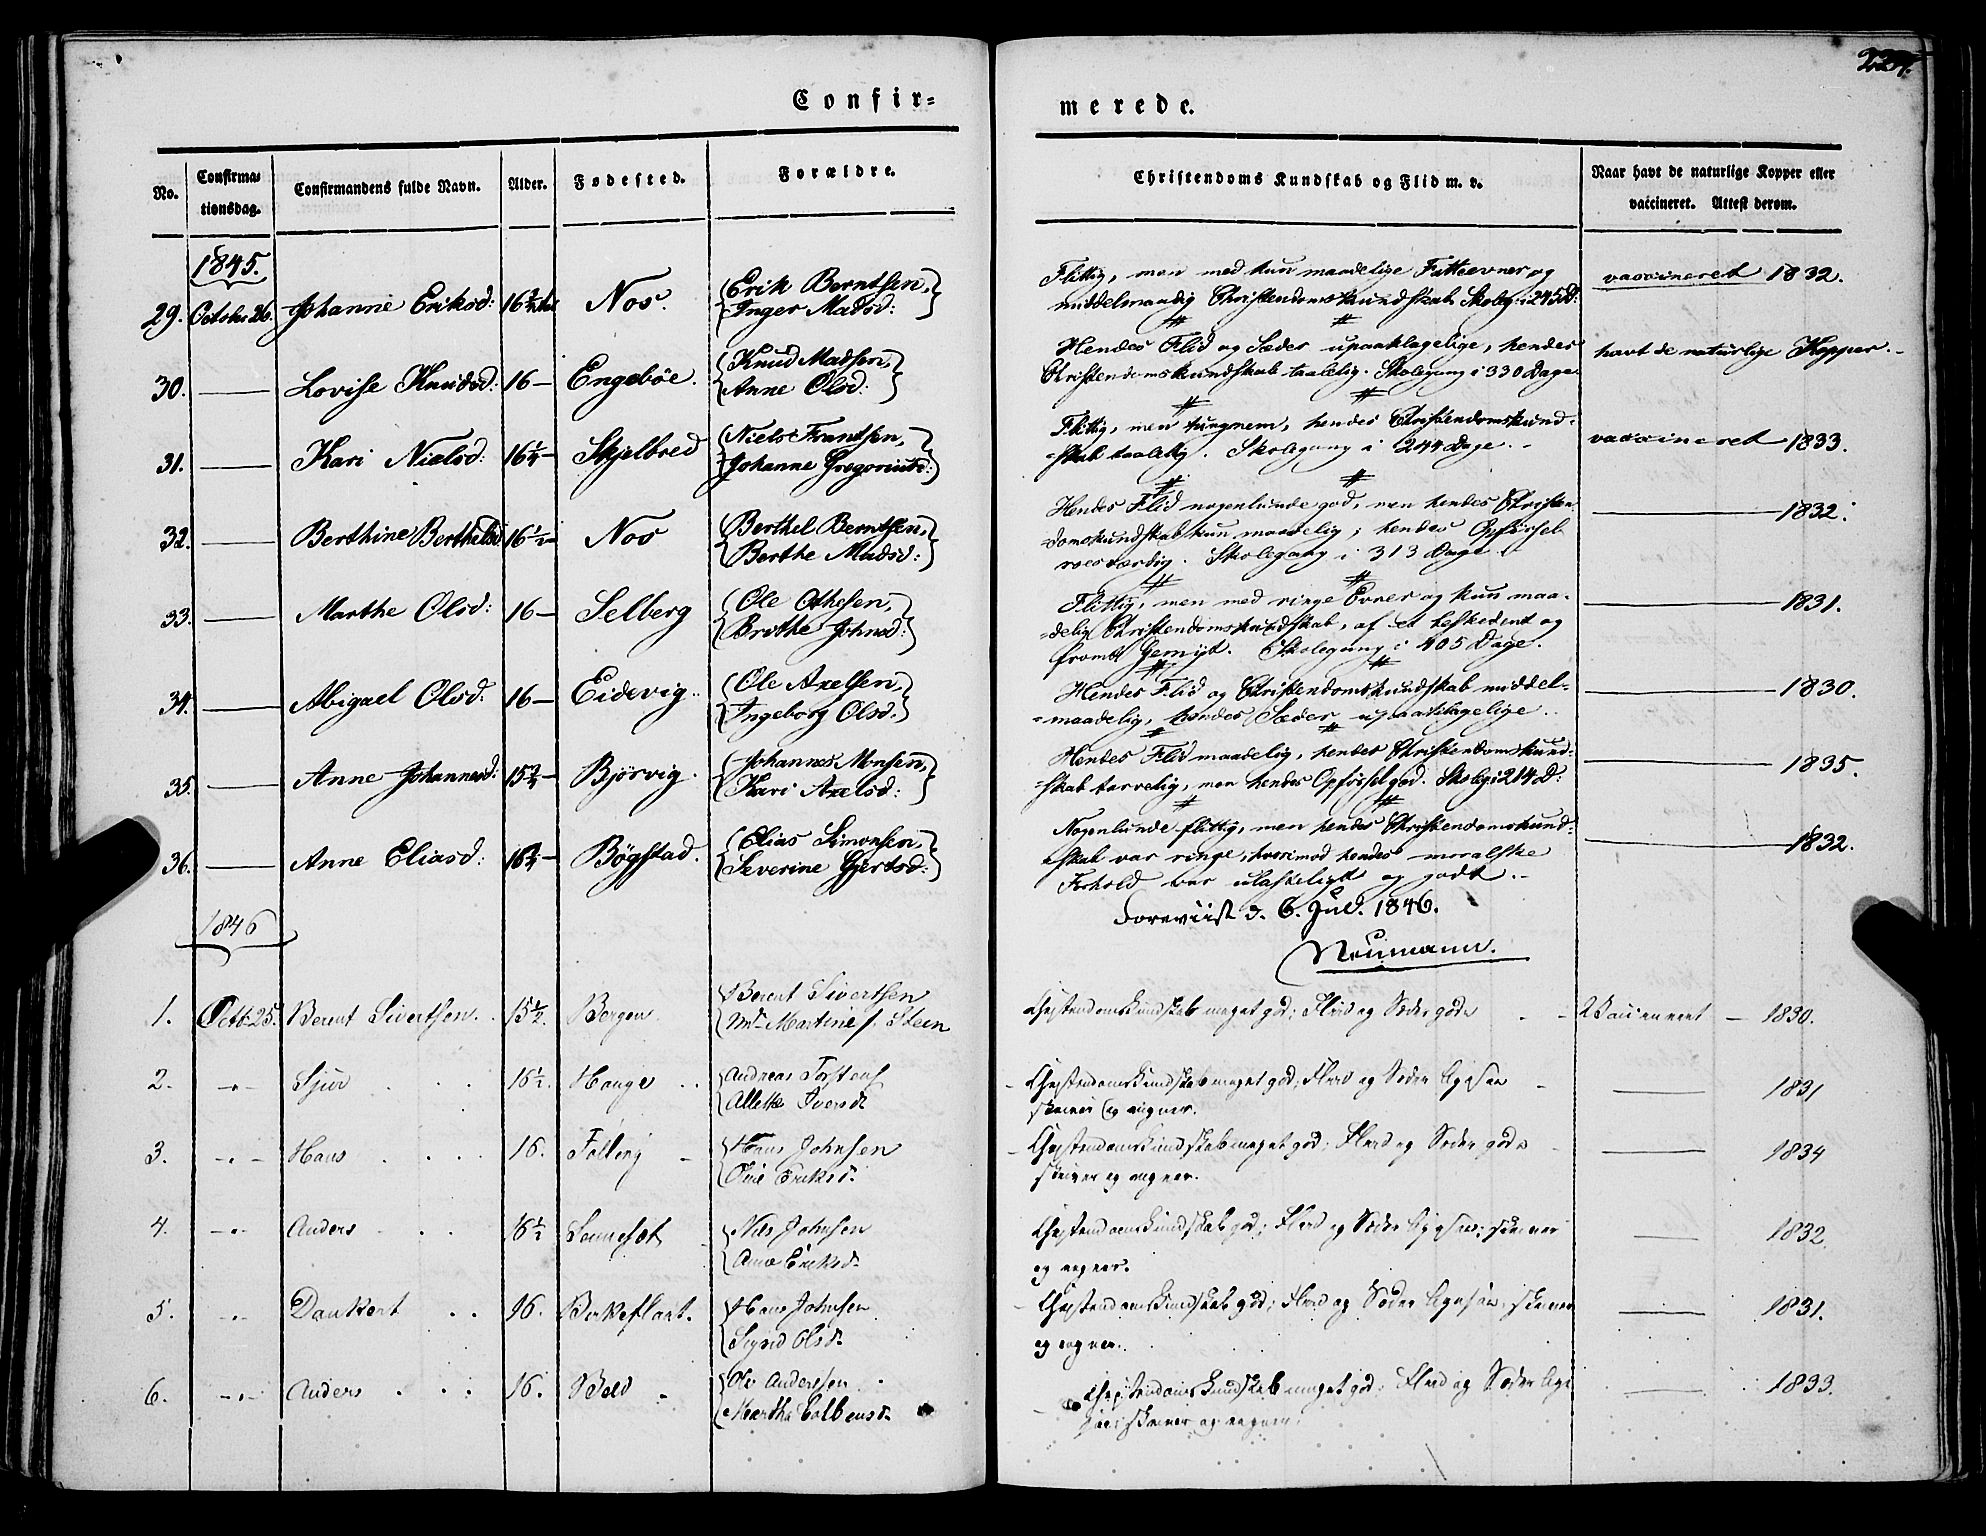 Confir-
merede.
No.
Confirma-
tionsdag.
Confirmandens fulde Navn.
Alder.
Fødested.
Forældre.
Christendoms Kundskab og Flid m. v.
Naar havt de naturlige Kopper eller
vaccineret. Attest derom.
1845.
29. Octobr 26. Johanne Eriksd: 16 Nos. Erik Berntsen,
Inger Madsd:
Flittig, men med kun maadelige Fatteevner og
middelmaadig Christendomskundskab. Skoleg: i 245 D:
vaccineret 1832.
30. Lovise Knudsd: 16 Engebøe. Knud Madsen,
Anne Olsd:
Hendes Flid og Sæder upaaklagelige, hendes
Christendomskundskab taalelig. Skolegang i 330 Dage
havt de naturlige Kopper.
31. Kari Nielsd: 16¼ Skjelbred Niels Frantsen,
Johanne Gregoriusd:
Flittig, men tungnem, hendes Christendomskund-
-skab taalelig. Skolegang i 244 Dage.
vaccineret 1833.
32. Berthine Berthelsd 16½ Nos Berthel Berntsen,
Berthe Madsd:
Hendes Flid nogenlunde god, men hendes Christen-
domskundskab kun maadelig; hendes Opførsel
roesværdig. Skolegang i 313 Dage.
1832.
33. Marthe Olsd: 16 Selberg Ole Othesen,
Brithe Johnsd:
Flittig, men med ringe Evner og kun maa-
-delig Christendomskundskab, af et beskedent og
fromt Gemyt. Skolegang i 405 Dage.
1831.
34. Abigael Olsd. 16 Eidevig. Ole Axelsen,
Ingeborg Olsd.
Hendes Flid og Christendomskundskab middel-
-maadelig, hendes Sæder upaaklagelige.
1830.
35. Anne Johannesd: 15¾ Bjørvig. Johannes Monsen,
Kari Axelsd:
Hendes Flid maadelig, hendes Christendomskund-
-skab tarvelig, men hendes Opførsel god. Skoleg: i 214 D:
1835.
36. Anne Eliasd: Bøgstad. Elias Simonsen,
Severine Gjertsd:
Nogenlunde flittig, men hendes Christendomskund-
-skab var ringe, hvorimod hendes moralske
Forhold var ulasteligt og godt.
1832.
Foreviist d. 6. Jul. 1846.
Neumann.
1846
1. Octb. 25. Berent Sivertsen. 15½. Bergen Berent Sivertsen
Md. Martine f. Steen
Christendomskundskab meget god; Flid og Sæder gode
Vaccineret 1830.
2. Sjur 16½. Hauge Andreas Torstens
Allette Iversd.
Christendomskundskab meget god; Flid og Sæder ligesaa
skriver og regner.
1831
3. Hans 16. Folling Hans Johnsen
Oline Eriksd.
Christendomskundskab meget god; Flid og Sæder gode
skriver og regner.
1834
4. Anders 16½ Nils Johnsen
Ana Eriksd.
Christendomskundskab god; Flid og Sæder ligesaa; skriver
og regner.
1832.
5. Dankert 16. Birkeflaat. Hans Johnsen
Sigrid Olsd.
Christendomskundskab god; Flid og Sæder ligesaa, skriver
og regner.
1831.
6. Anders 16. Ole Andersen
Martha Colbensd.
Christendomskundskab meget god; Flid og Sæder lige
saa; skriver og regner.
1833.